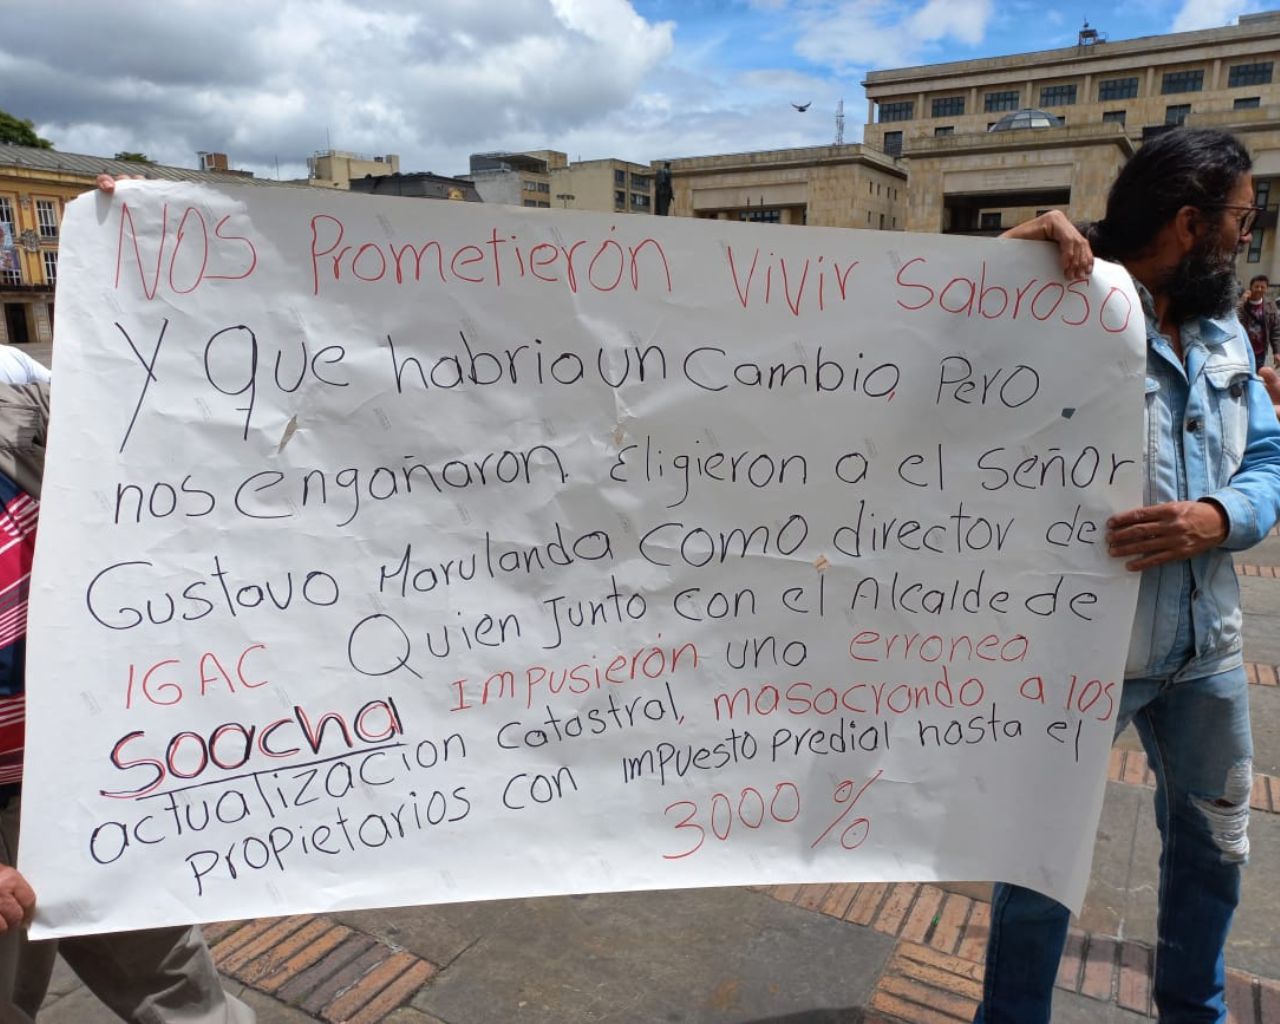 NOS Prometierón Vivir Sabroso
Y que habria un Cambio, Pero
nos engañaron. Eligieron a el Señor
Gustavo Marulanda como director de
IGAC Quien Junto con el Alcalde de
Soacha Impusierón una erronea
actualizacion catastral, masacrando a los
propietarios con impuesto predial hasta el
3000 %